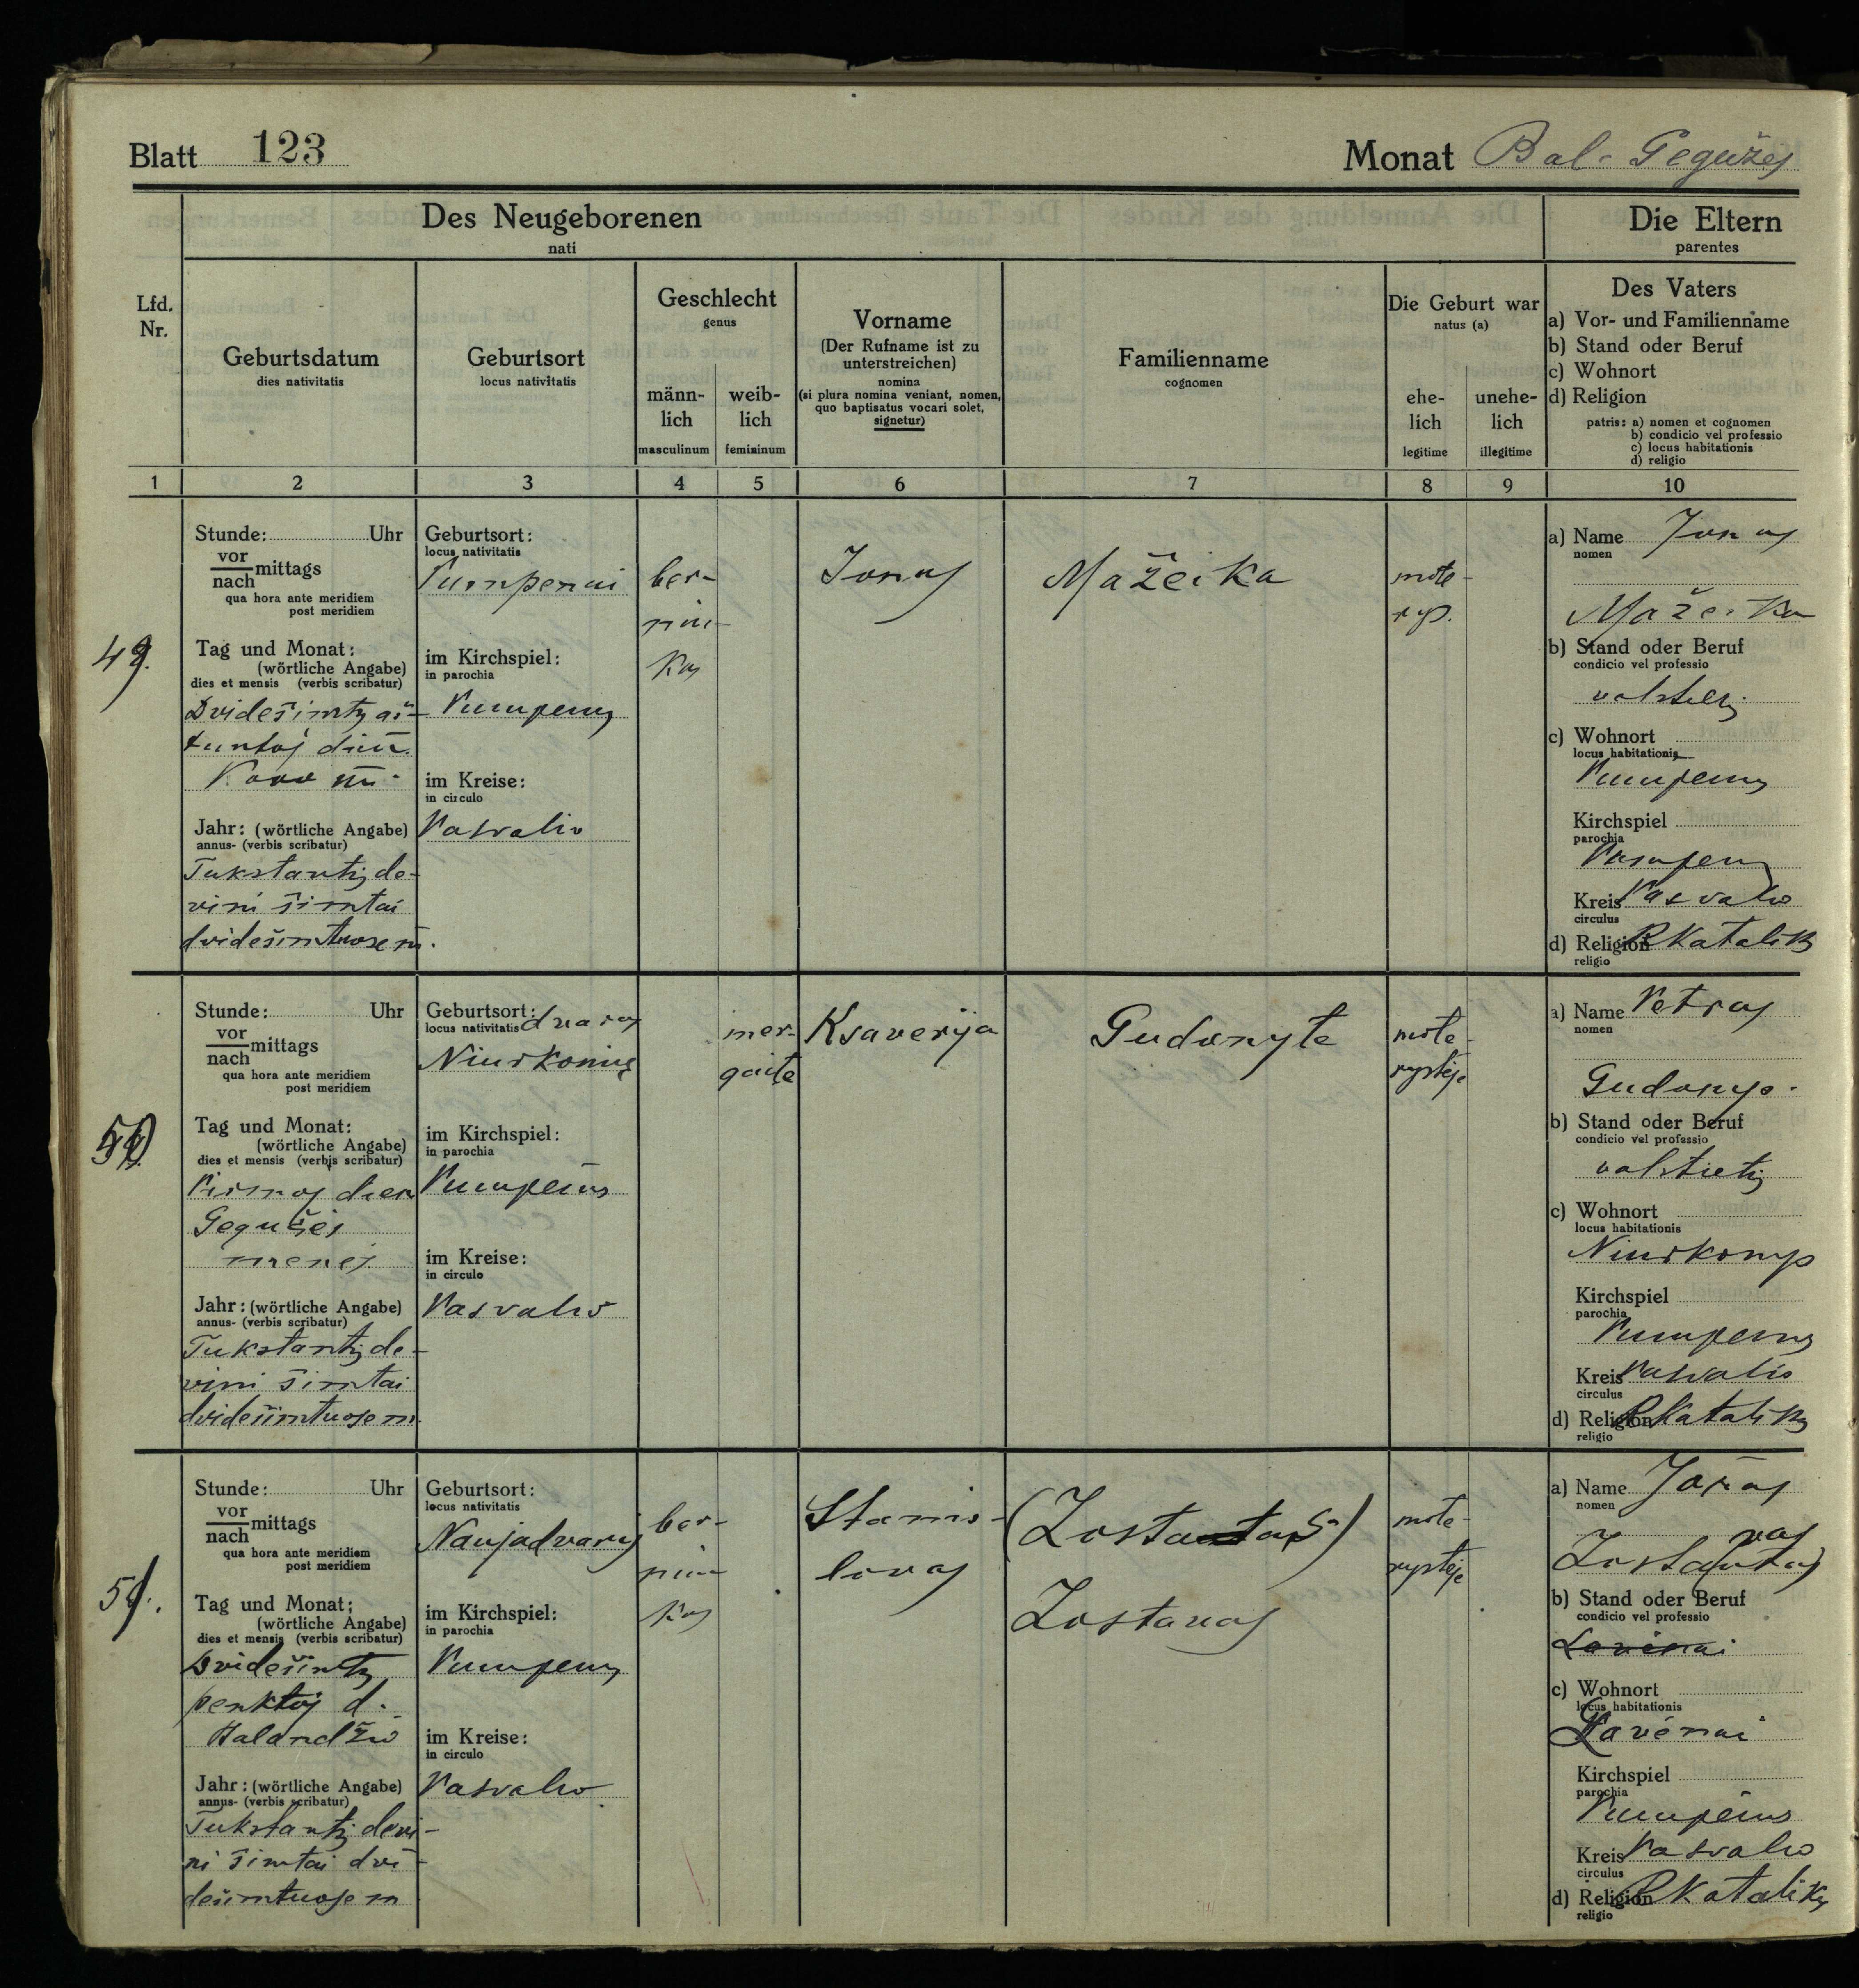 Blatt 123
Monat Bal- Gegužėj
Des Neugeborenen
nati
Die Eltern
parentes
Lfd.
Nr.
Geburtsdatum
dies nativitatis
Geburtsort
locus nativitatis
Geschlecht
genus
männ-
lich
masculinum
weib-
lich
femininum
Vorname
(Der Rufname ist zu
unterstreichen)
nomina
(si plura nomina veniant, nomen,
quo baptisatus vocari solet,
signetur)
Familienname
cognomen
Die Geburt war
natus (a)
ehe-
lich
legitime
unehe-
lich
illegitime
Des Vaters
a) Vor- und Familienname
b) Stand oder Beruf
c) Wohnort
d) Religion
patris: a) nomen et cognomen
b) condicio vel professio
c) locus habitationis
d) religio
1 2 3 4 5 6 7 8 9 10
49.
Stunde: Uhr
vor
nach mittags
qua hora ante meridiem
post meridiem
Tag und Monat:
(wörtliche Angabe)
dies et mensis (verbis scribatur)
Dvidešimtų aš-
tuntoj dien.
Kovo m.
Jahr: (wörtliche Angabe)
annus- (verbis scribatur)
Tukstantį de-
vini šimtai
dvidešimtuose m.
Geburtsort:
locus nativitatis
Pumpenai
im Kirchspiel:
in parochia
Pumpenų
im Kreise:
in circulo
Pasvalio
ber-
niu-
kas
Jonas
Mažeika
mote-
ryst.
a) Name Jonas
nomen
Mažeika
b) Stand oder Beruf
condicio vel professio
c) Wohnort
locus habitationis
Pumpenų
Kirchspiel
parochia
Pumpenų
Kreis Pasvalio
circulus
d) Religion R Katalik
religio
50.
Stunde: Uhr
vor
nach mittags
qua hora ante meridiem
post meridiem
Tag und Monat:
(wörtliche Angabe)
dies et mensis (verbis scribatur)
Pirmoj dien
Gegužės
menes
Jahr: (wörtliche Angabe)
annus- (verbis scribatur)
Tukstantį de-
vini šimtai
dvidešimtuose m.
Geburtsort:
locus nativitatis dvaras
Niurkonių
im Kirchspiel:
in parochia
Pumpenų
im Kreise:
in circulo
Pasvalio
mer-
gaite
Ksaverija
Gudonyte
mote-
rystėje
a) Name Petras
nomen
Gudonys.
b) Stand oder Beruf
condicio vel professio
valstietis
c) Wohnort
locus habitationis
Niurkonys
Kirchspiel
parochia
Pumpenų
Kreis Pasvalio
circulus
d) Religion R Katalikų
religio
51.
Stunde: Uhr
vor
nach mittags
qua hora ante meridiem
post meridiem
Tag und Monat:
(wörtliche Angabe)
dies et mensis (verbis scribatur)
Dvidešimtų
penktoj d.
Balandžio
Jahr: (wörtliche Angabe)
annus- (verbis scribatur)
Tukstantį devi-
ni šimtai dvi-
dešimtuose m
Geburtsort:
locus nativitatis
Naujadvaris
im Kirchspiel:
in parochia
Pumpenų
im Kreise:
in circulo
Pasvalio
ber-
niu-
kas
Stanis-
lovas
(Zostautas)
Zostavas
mote-
rystėje
a) Name
nomen
vas
Zostautas
b) Stand oder Beruf
condicio vel professio
c) Wohnort
locus habitationis
Lavėnai
Kirchspiel
parochia
Pumpenų
Kreis Pasvalio
circulus
d) Religion R Katalikų
religio